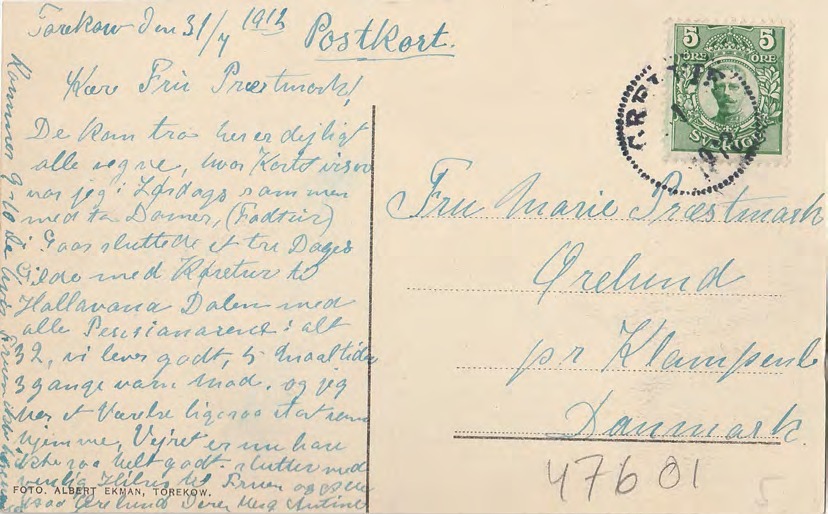 Torekow den 31/7 1912
Postkort.
Kære Fru Præstmark!
De kan tro her er dejligt
alle vegne, hvor Kortet viser
var jeg i Lørdags sammen
med to Damer, (Fodtur)
i Gaar sluttede et tre Dages
Gilde med Køretur til
Hallavara Dalen med
alle Pensionærene i alt
32, vi lever godt, 5 Maaltider
3 gange varm Mad. og jeg
har et Værelse ligesaa stort som
hjemme, Vejret er nu bare
ikke saa helt godt. slutter med
venlig Hilsen til Fruen og
Ørelund Deres
Kommer
5 ÖRE 5 ÖRE
SVERIGE
Fru Marie Præstmark
Ørelund
pr Klampenb
Danmark.
47601
5
FOTO. ALBERT EKMAN, TOREKOW.